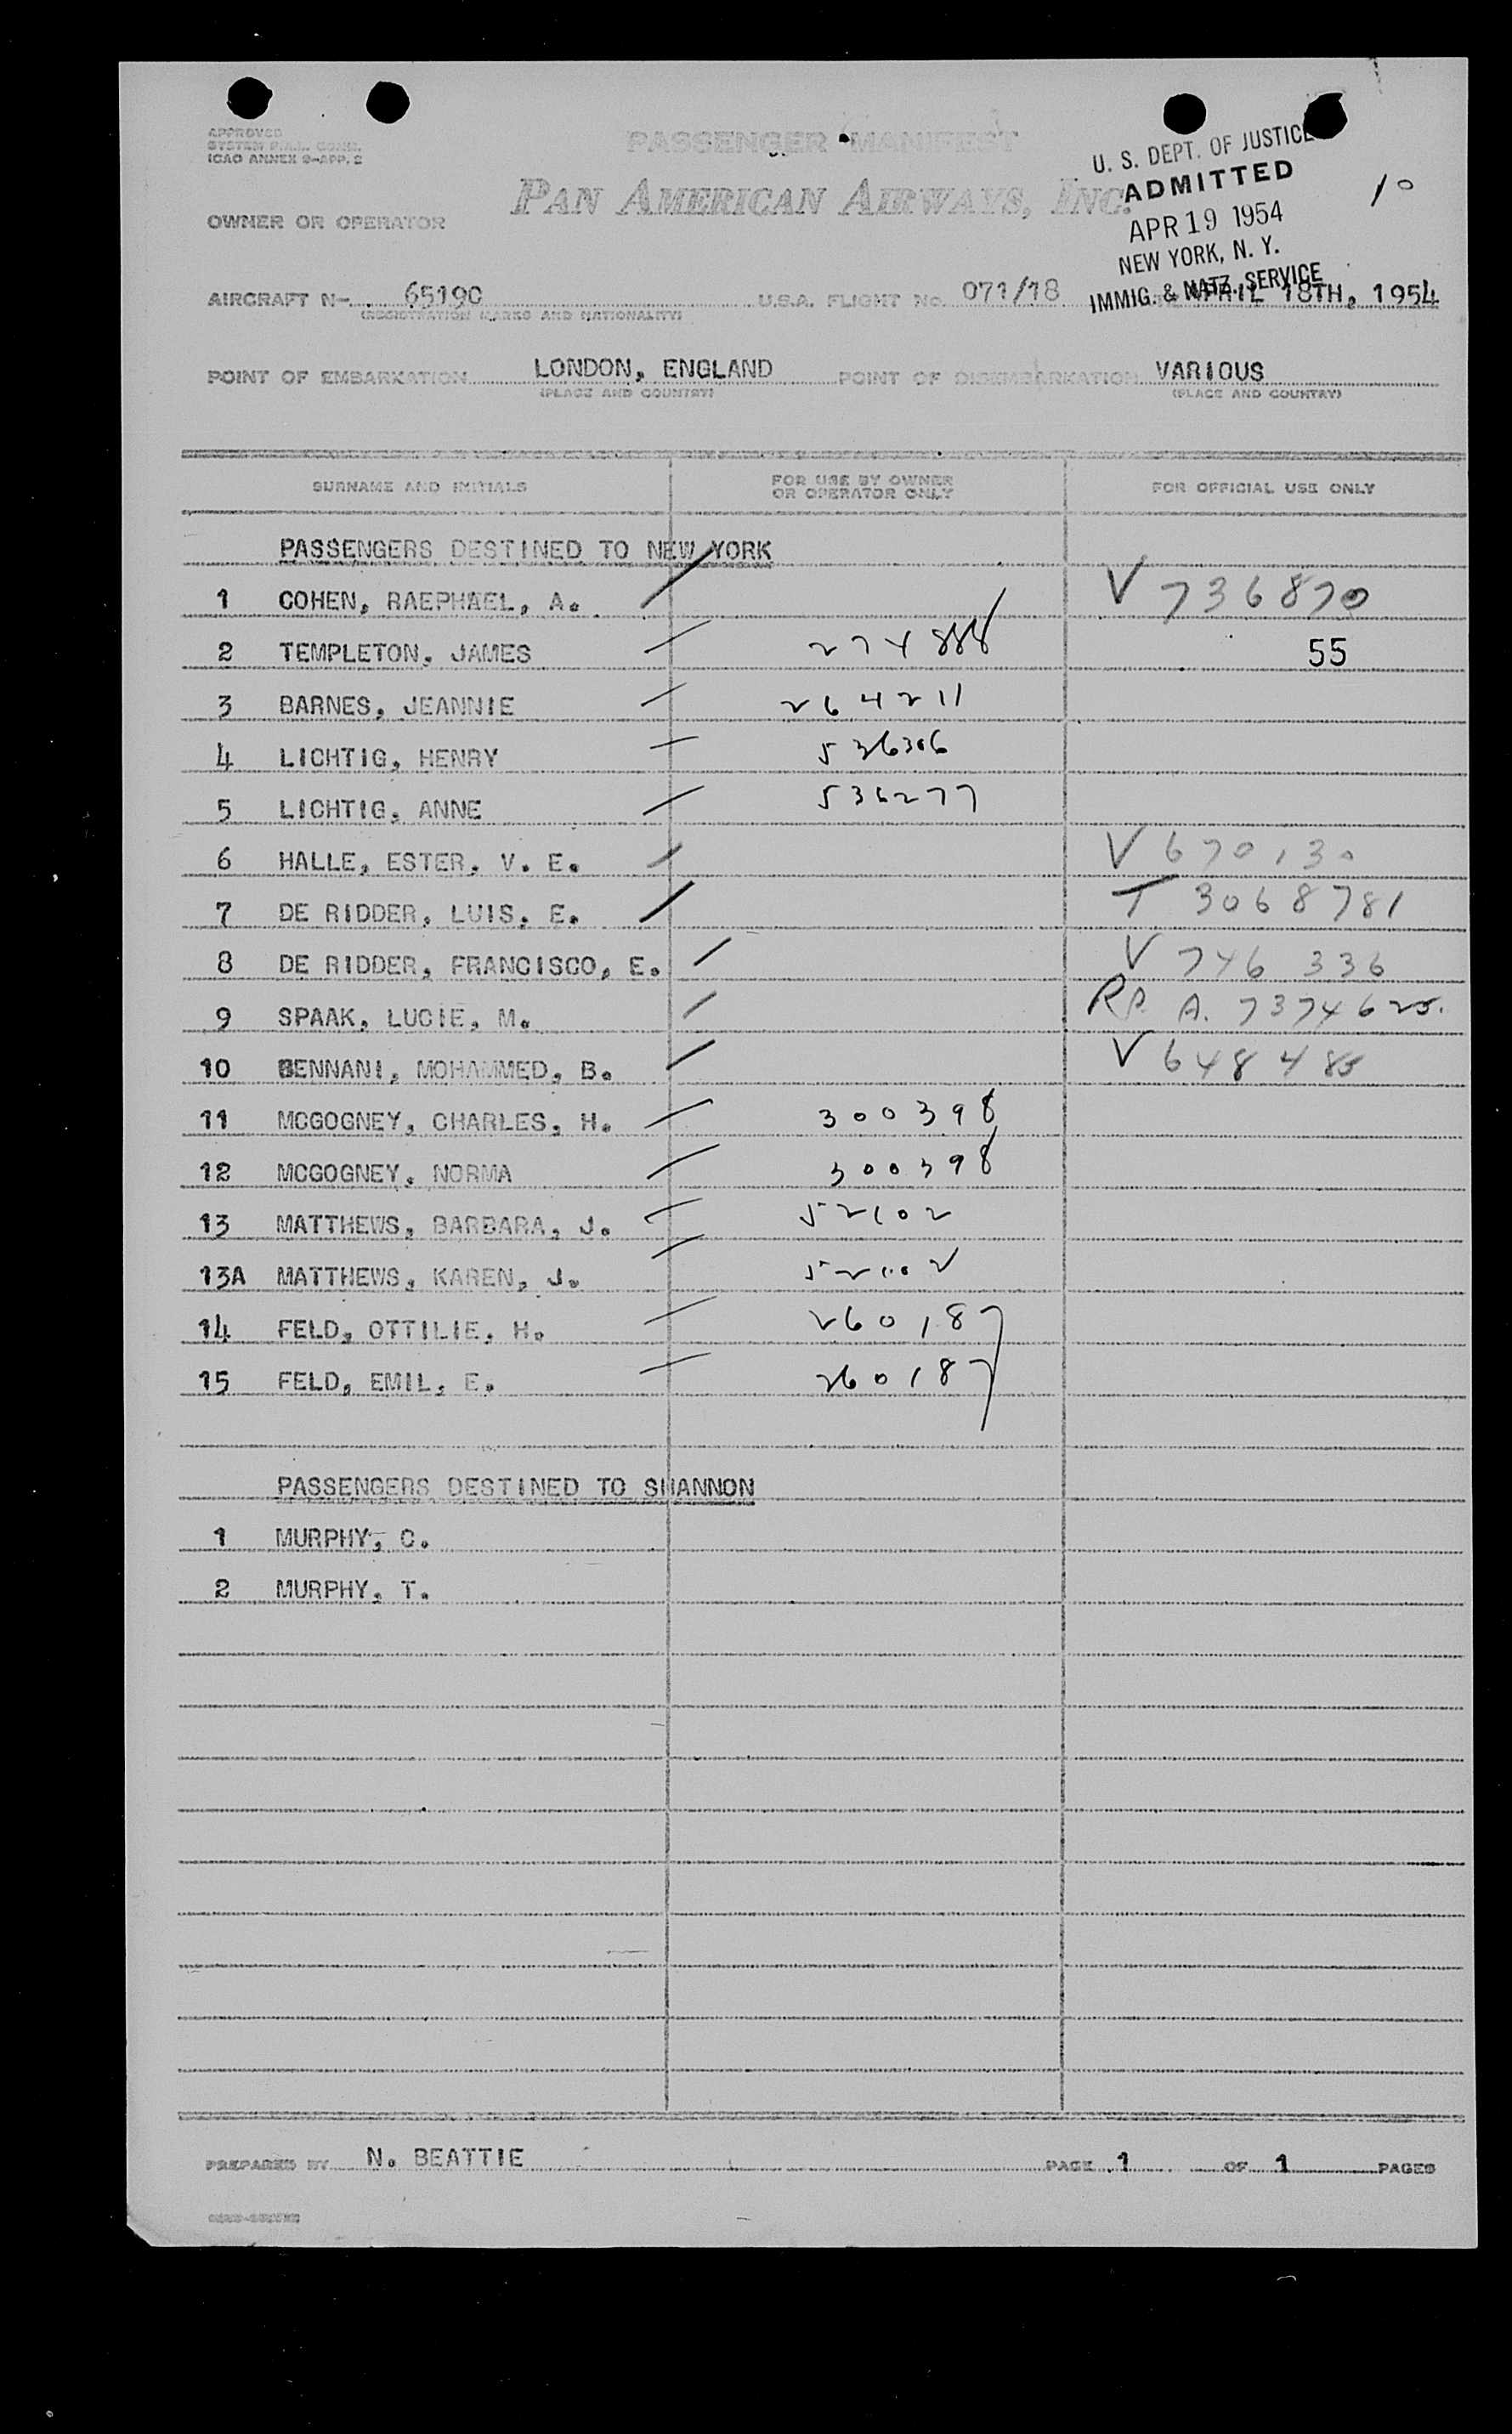 APPROVED
ICAO ANNEX 9-APP. 2
PASSENGER MANIFEST
PAN AMERICAN AIRWAYS, INC.
U. S. DEPT. OF JUSTICE
ADMITTED
APR 19 1954
NEW YORK, N. Y.
IMMIG. & NATZ. SERVICE
10
OWNER OR OPERATOR
AIRCRAFT N- 65190 U.S.A. FLIGHT No. 071/18 APRIL 18TH, 1954
(REGISTRATION MARKS AND NATIONALITY)
POINT OF EMBARKATION LONDON, ENGLAND POINT OF DISEMBARKATION VARIOUS
(PLACE AND COUNTRY) (PLACE AND COUNTRY)
SURNAME AND INITIALS FOR USE BY OWNER OR OPERATOR ONLY FOR OFFICIAL USE ONLY
PASSENGERS DESTINED TO NEW YORK
1 COHEN, RAEPHAEL, A. V 736870
2 TEMPLETON, JAMES 274888 55
3 BARNES, JEANNIE 264211
4 LICHTIG, HENRY 536306
5 LICHTIG, ANNE 536277
6 HALLE, ESTER, V. E. V 670130
7 DE RIDDER, LUIS, E. T 3068781
8 DE RIDDER, FRANCISCO, E. V 746 336
9 SPAAK, LUCIE, M. RP A. 7374625.
10 BENNANI, MOHAMMED, B. V 648485
11 MCGOGNEY, CHARLES, H. 300398
12 MCGOGNEY, NORMA 300398
13 MATTHEWS, BARBARA, J. 52102
13A MATTHEWS, KAREN, J. 52102
14 FELD, OTTILIE, H. 260187
15 FELD, EMIL, E. 260187
PASSENGERS DESTINED TO SHANNON
1 MURPHY, C.
2 MURPHY, T.
PREPARED BY N. BEATTIE PAGE 1 OF 1 PAGES